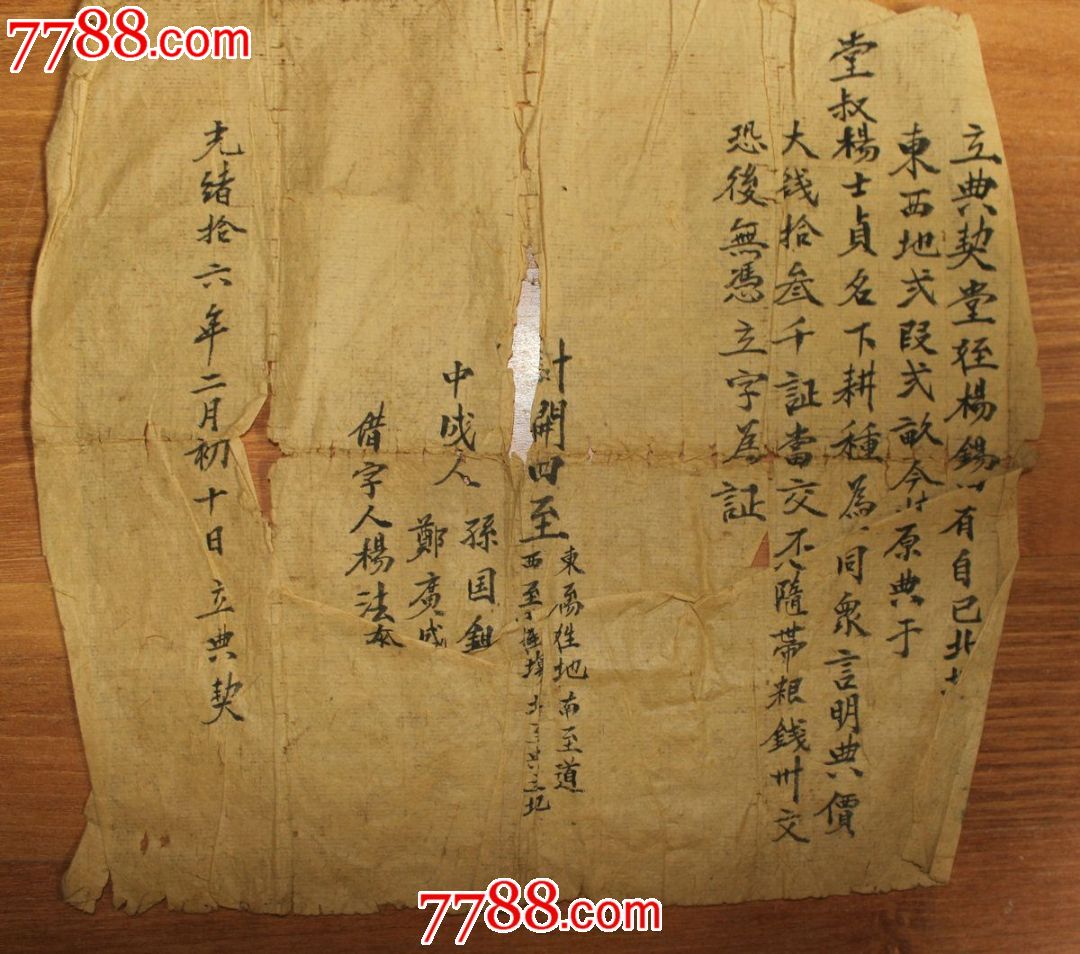 7788.com
立典契堂侄楊錫有自己北
東西地弍段弍畝今原典于
堂叔楊士貞名下耕種為同衆言明典價
大錢拾叁千証當交不隨帶粮錢卅文
恐後無憑立字為証
計開四至
東楊姓地南至道
西至
中成人 孫国鉏
鄭廣成
借字人楊法泰
光緒拾六年二月初十日立典契
7788.com